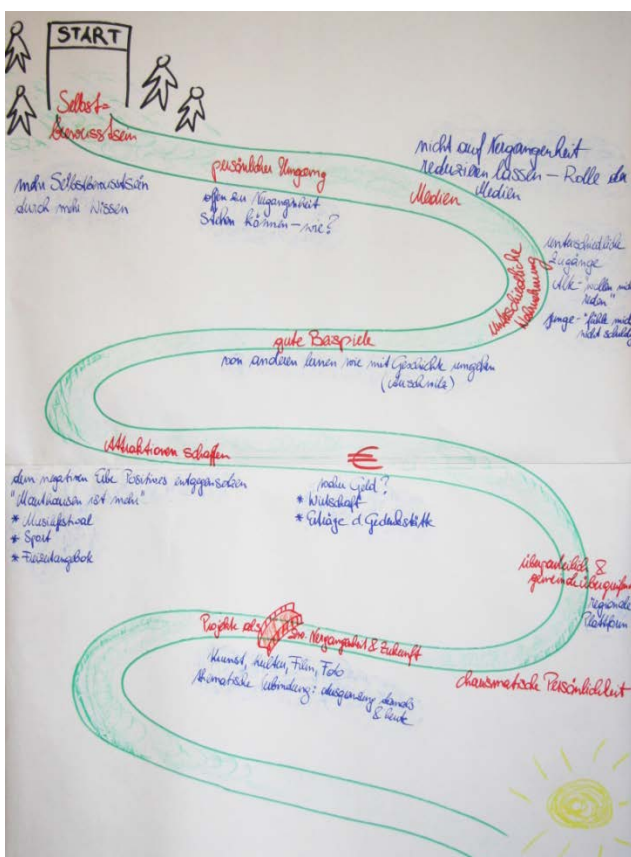 START
Selbst=
bewusstsein
mehr Selbstbewusstsein
durch mehr Wissen
persönlicher Umgang
offen zu Vergangenheit
stehen können – wie?
Medien
nicht auf Vergangenheit
reduzieren lassen – Rolle der
Medien
Unterschiedliche
Wahrnehmung
unterschiedliche
Zugänge
Alte - "wollen nicht
reden"
Junge - "fühle mich
nicht schuldig
gute Beispiele
von anderen lernen wie mit Geschichte umgehen
Attraktionen schaffen
dem negativen Erbe Positives entgegensetzen
"Mauthausen ist mehr"
* Musikfestival
* Sport
* Freizeitangebote
€
woher Geld?
* Wirtschaft
* Erträge d. Gedenkstätte
überparteilich &
gemeindeübergreifend
regionale
Plattform
charismatische Persönlichkeit
Projekte als
zw. Vergangenheit & Zukunft
Kunst, Kultur, Film, Foto
thematische Verbindung: damals
& heute